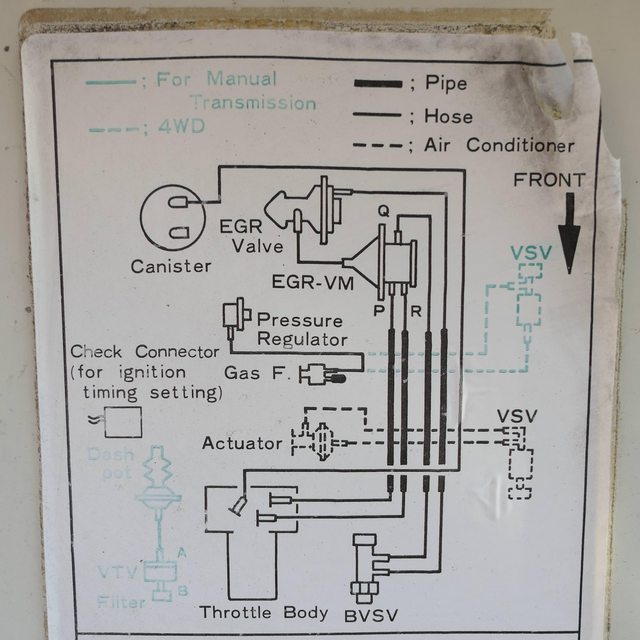 ; For Manual
Transmission
; 4WD
; Pipe
; Hose
; Air Conditioner
FRONT
Q
EGR
Valve
Canister
EGR-VM
VSV
P R
Pressure
Regulator
Check Connector
(for ignition
timing setting)
Gas F.
VSV
Actuator
Dash
pot
A
VTV
B
Filter
Throttle Body
BVSV